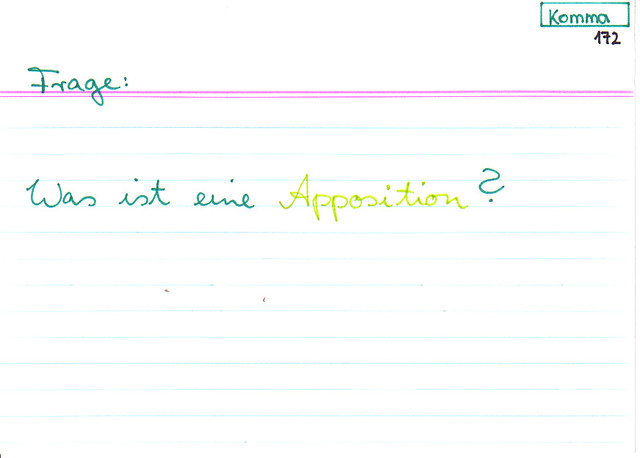 Komma
172
Frage:
Was ist eine Apposition?